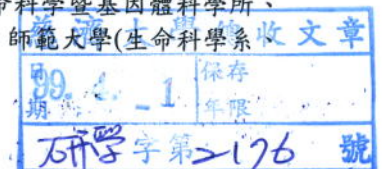 命科學暨基因體科學所、
師範大學(生命科學系、
慈濟大學收文章
日期 99. 4. -1 保存年限
研學字第2176號